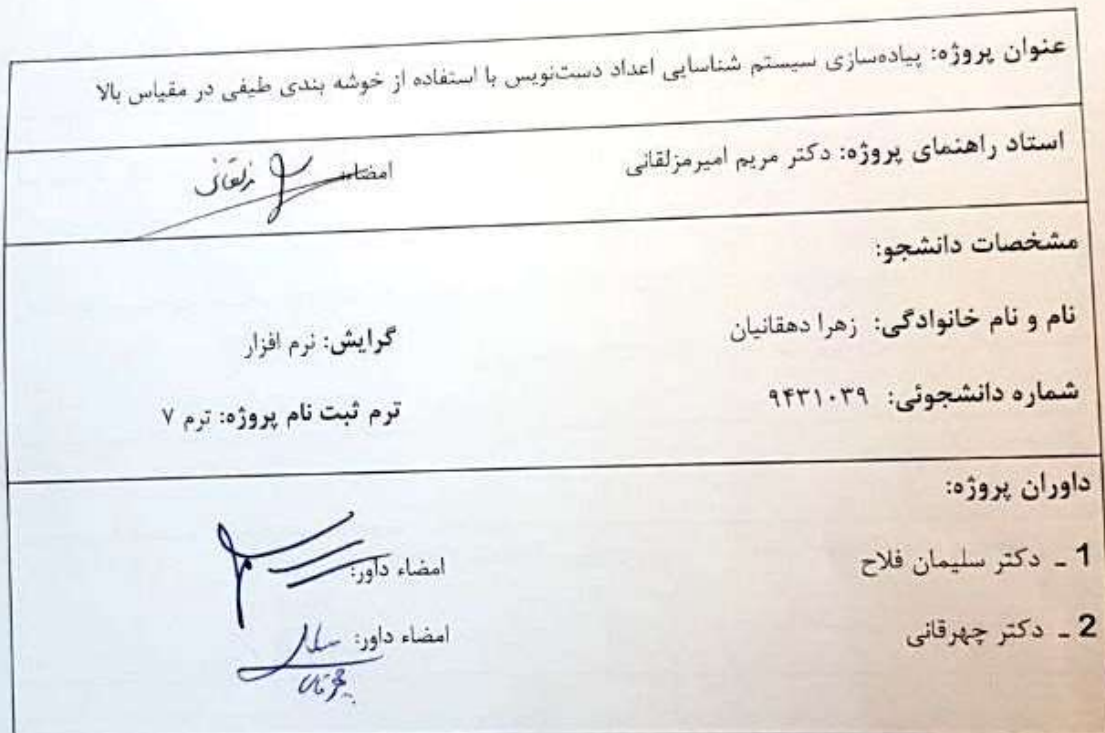 عنوان پروژه: پیاده‌سازی سیستم شناسایی اعداد دست‌نویس با استفاده از خوشه بندی طیفی در مقیاس بالا
استاد راهنمای پروژه: دکتر مریم امیرمزلقانی امضاء:
مشخصات دانشجو:
نام و نام خانوادگی: زهرا دهقانیان گرایش: نرم افزار
شماره دانشجوئی: ۹۴۳۱۰۳۹ ترم ثبت نام پروژه: ترم ۷
داوران پروژه:
1 ـ دکتر سلیمان فلاح امضاء داور:
2 ـ دکتر چهرقانی امضاء داور: